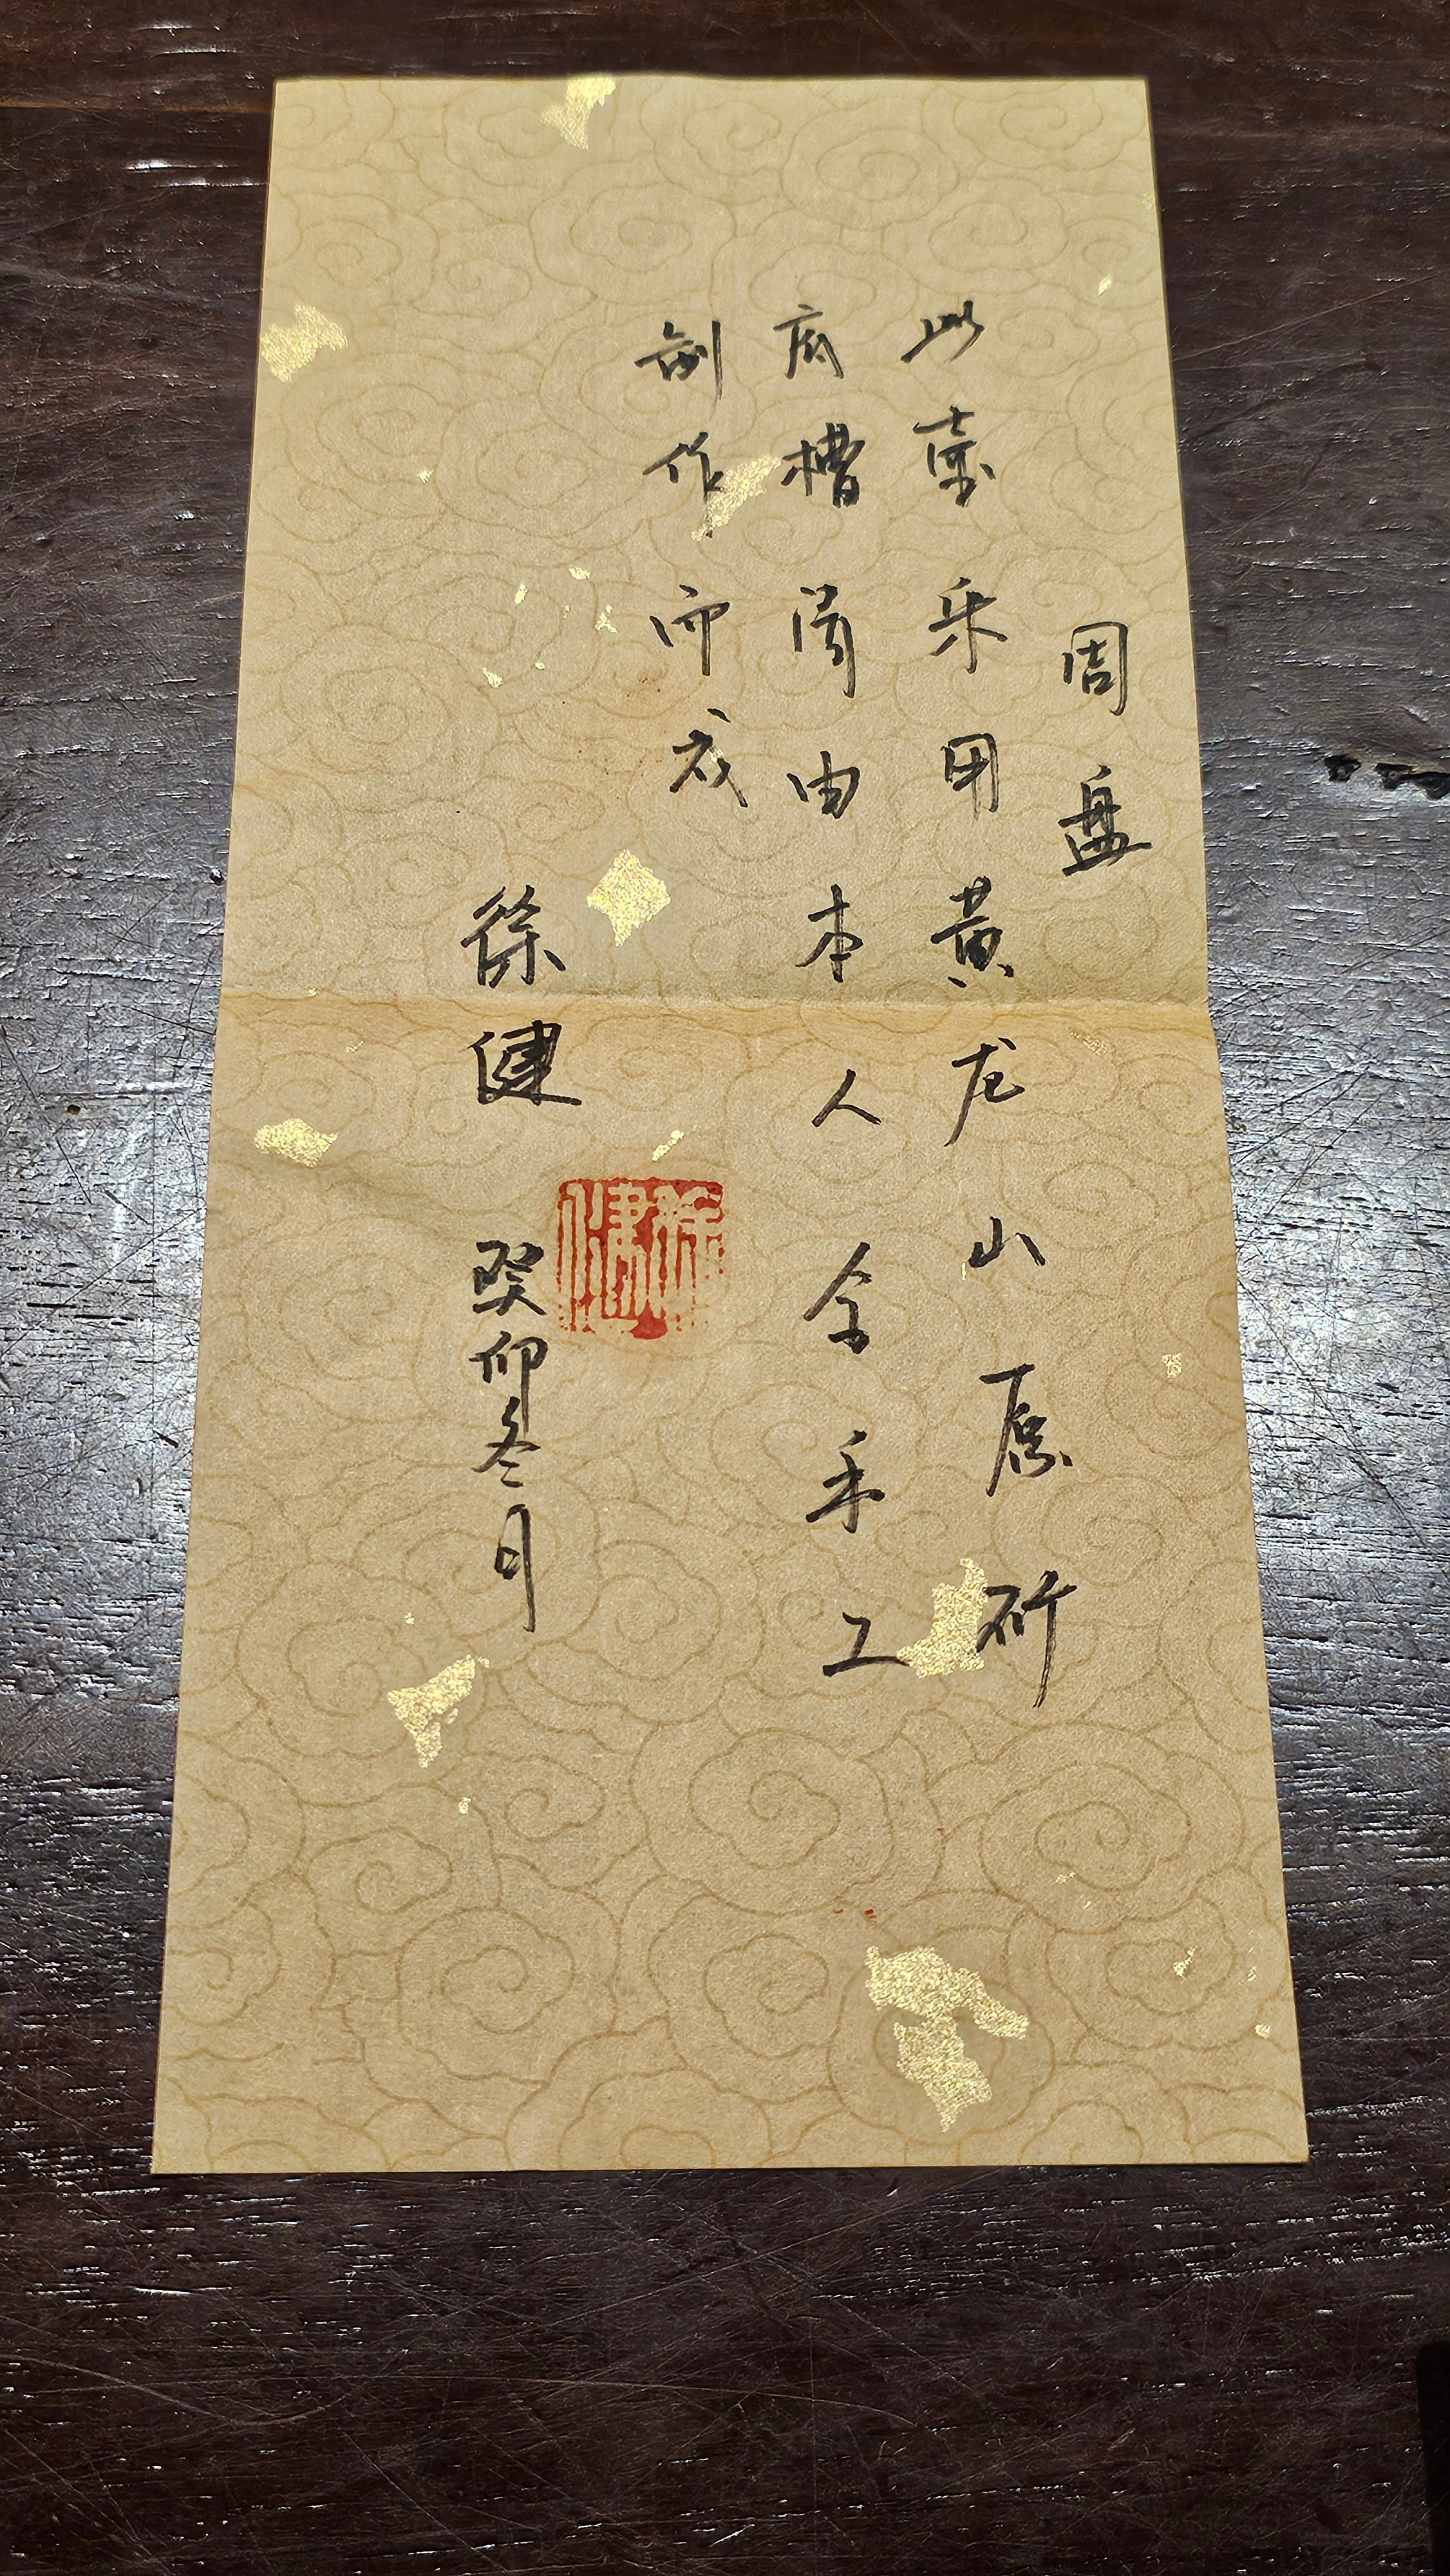 周盘
此壶采用黄龙山原矿
底槽清由本人全手工
制作而成
徐健 癸卯冬月
徐健